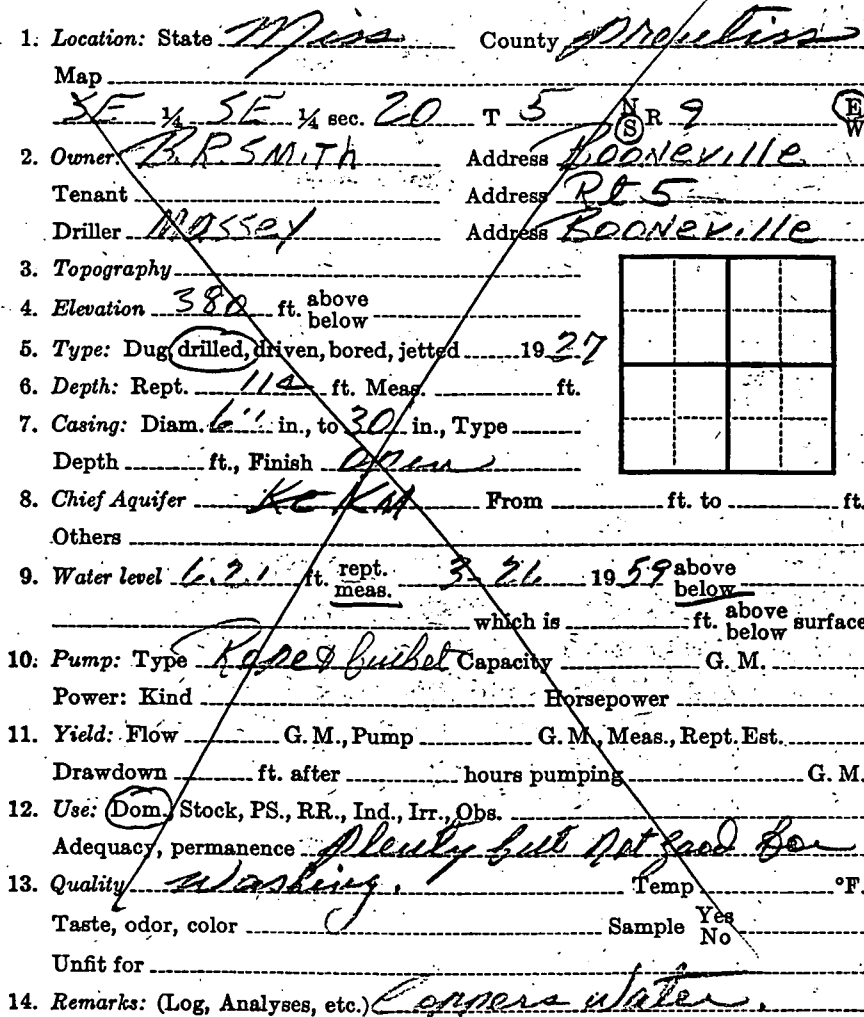 1. Location: State Miss County Prentiss
Map
SE 1/4 SE 1/4 sec. 20 T 5 N S R 9 E W
2. Owner B.P. SMITH Address Booneville
Tenant Address Rt 5
Driller MASSEY Address BOONEVIlle
3. Topography
4. Elevation 380 ft. above below
5. Type: Dug, drilled, driven, bored, jetted 1927
6. Depth: Rept. 114 ft. Meas. ft.
7. Casing: Diam. 6" in., to 30 in., Type
Depth ft., Finish Open
8. Chief Aquifer KM From ft. to ft.
Others
9. Water level ft. rept. meas. 3-26 1959 above below
which is ft. above below surface
10. Pump: Type Rope & bucket Capacity G. M.
Power: Kind Horsepower
11. Yield: Flow G. M., Pump G. M., Meas., Rept. Est.
Drawdown ft. after hours pumping G. M.
12. Use: Dom., Stock, PS., RR., Ind., Irr., Obs.
Adequacy, permanence Plenty but not good for
13. Quality washing. Temp °F.
Taste, odor, color Sample Yes No
Unfit for
14. Remarks: (Log, Analyses, etc.) Coppers Water.